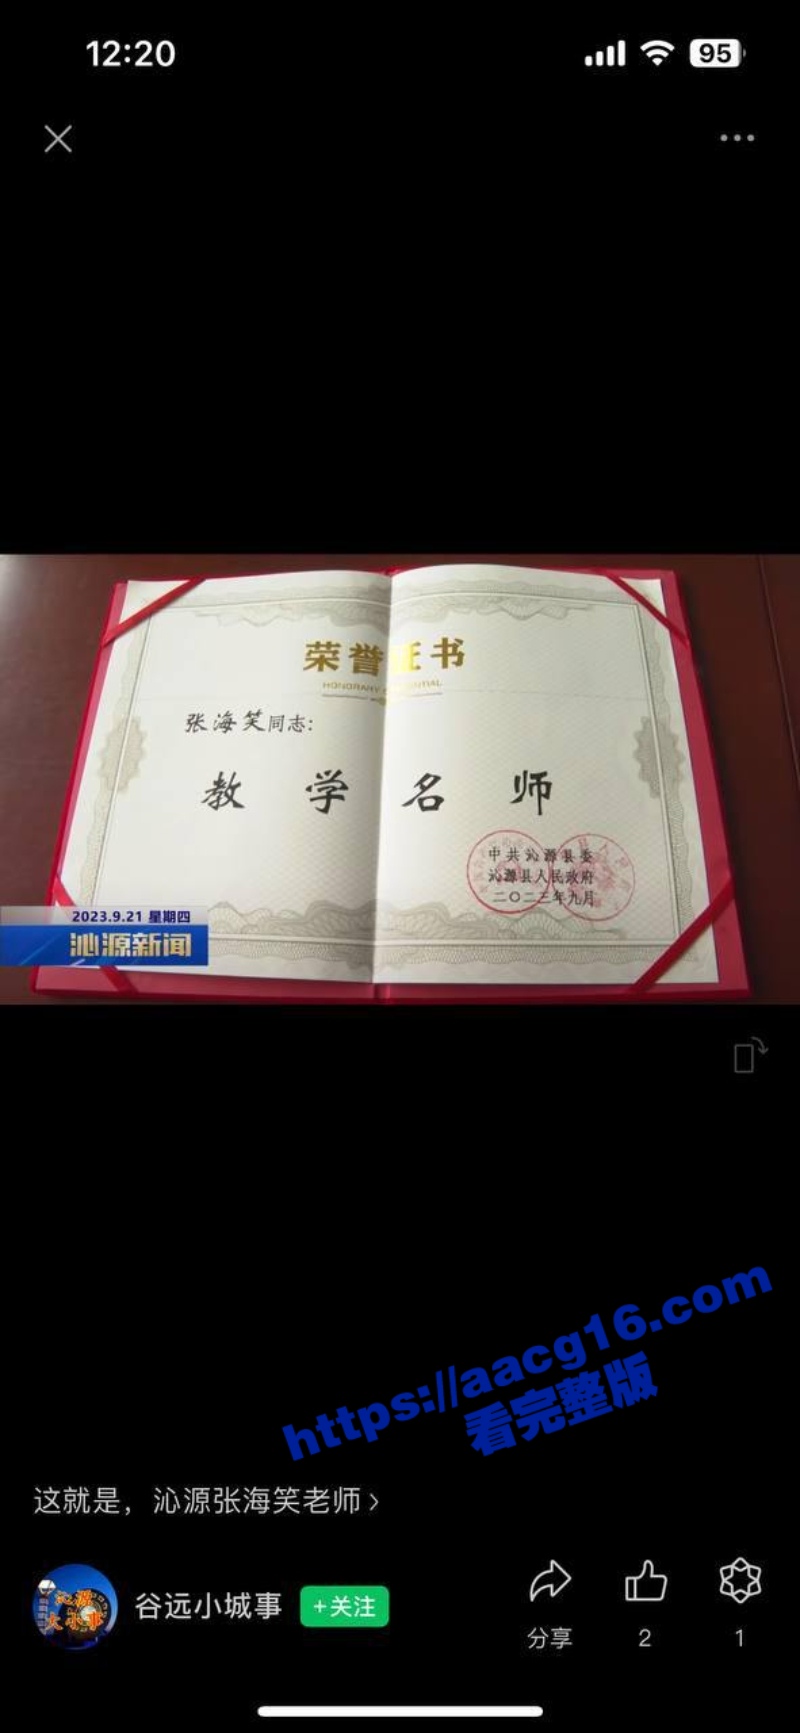 12:20
95
荣誉证书
张海笑同志:
教学名师
中共沁源县委
沁源县人民政府
二〇二三年九月
2023.9.21 星期四
沁源新闻
https://aacg16.com
看完整版
这就是，沁源张海笑老师 >
谷远小城事
+关注
分享
2
1